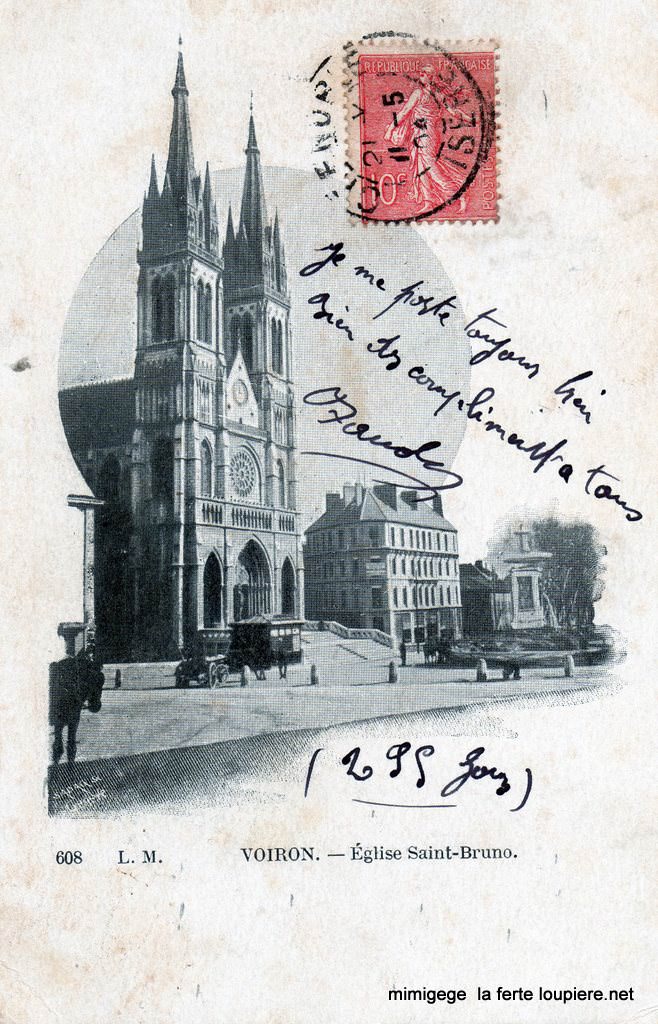 REPUBLIQUE FRANÇAISE
10c
POSTES
11-5
Je me porte toujours bien
bien des compliments a tous
(255 Jours)
608 L. M. VOIRON. — Église Saint-Bruno.
mimigege la ferte loupiere.net